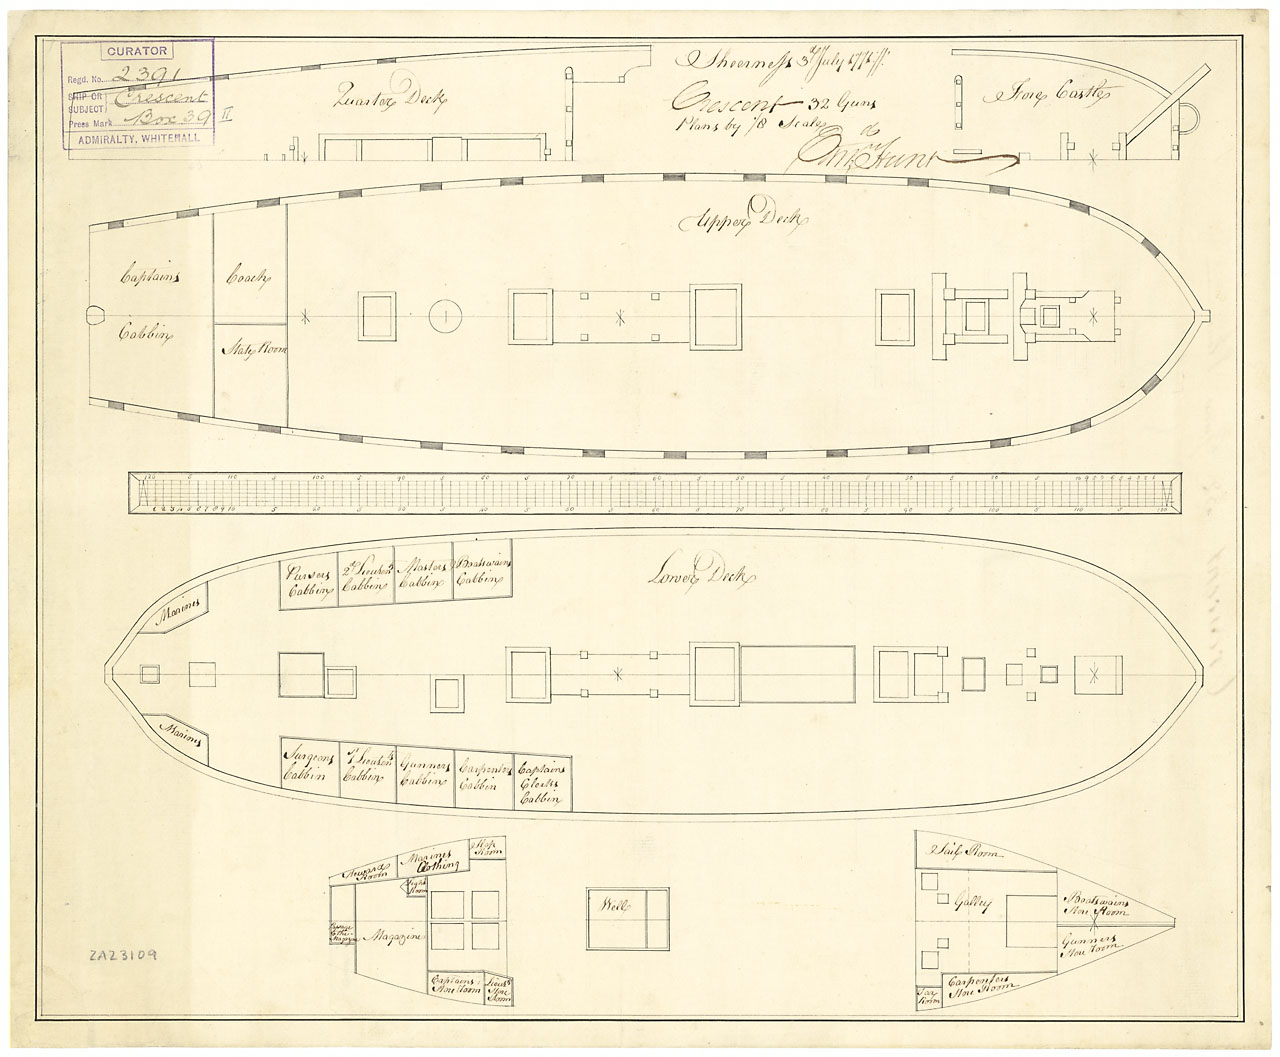 CURATOR
Regd. No. 2391
SHIP OR SUBJECT Crescent
Press Mark Box 39 II
ADMIRALTY, WHITEHALL
Quarter Deck
Sheerness 3d July
Crescent 32 Guns
Plans by 1/8 Scale
Wm Hunt
Fore Castle
Upper Deck
Captains
Cabbin
Coach
State Room
Lower Deck
Marines
Pursers
Cabbin
2d Lieutents
Cabbin
Masters
Cabbin
Boatswains
Cabbin
Marines
Surgeons
Cabbin
1st Lieutents
Cabbin
Gunners
Cabbin
Carpenters
Cabbin
Captains
Clerks
Cabbin
Steward
Room
Marines
Clothing
Slop
Room
Light
Room
Passage
to the
Magazine
Magazine
Captains
Store Room
Lieuts
Store
Room
Well
Sail Room
Galley
Boatswains
Store Room
Gunners
Store Room
Carpenters
Store Room
Room
ZAZ3109